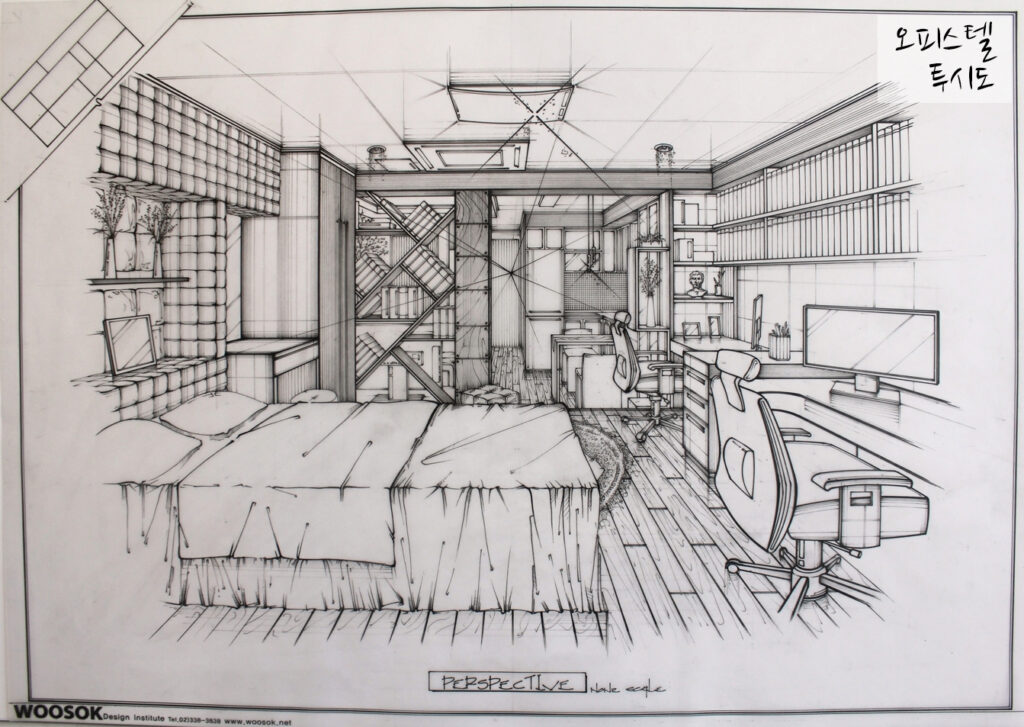 오피스텔
투시도
PERSPECTIVE None scale
WOOSOK Design Institute Tel.02)338-3838 www.woosok.net